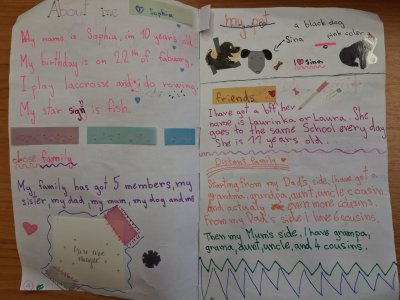 About me
Sophia
My name is Sophia, im 10 years old
My birthday is on 22th of fabuary.
I play lacrosse and do rowing.
My star sign is fish.
close family
My family has got 5 members, my
sister, my dad, my mum, my dog and me
my pet
a black dog
Sina
pink color
I sina
friends
I have got a bff, her
name is Laurinka or Laura. She
goes to the same School every day.
She is 11 years old.
Distant family
Starting from my Dad's side, I have got a
grandma, grandpa, aunt, uncle, cousin
and actualy even more cousins.
From my Dad's side I have 6 cousins.
Then my Mum's side, I have grampa,
grama, aunt, uncle, and 4 cousins.